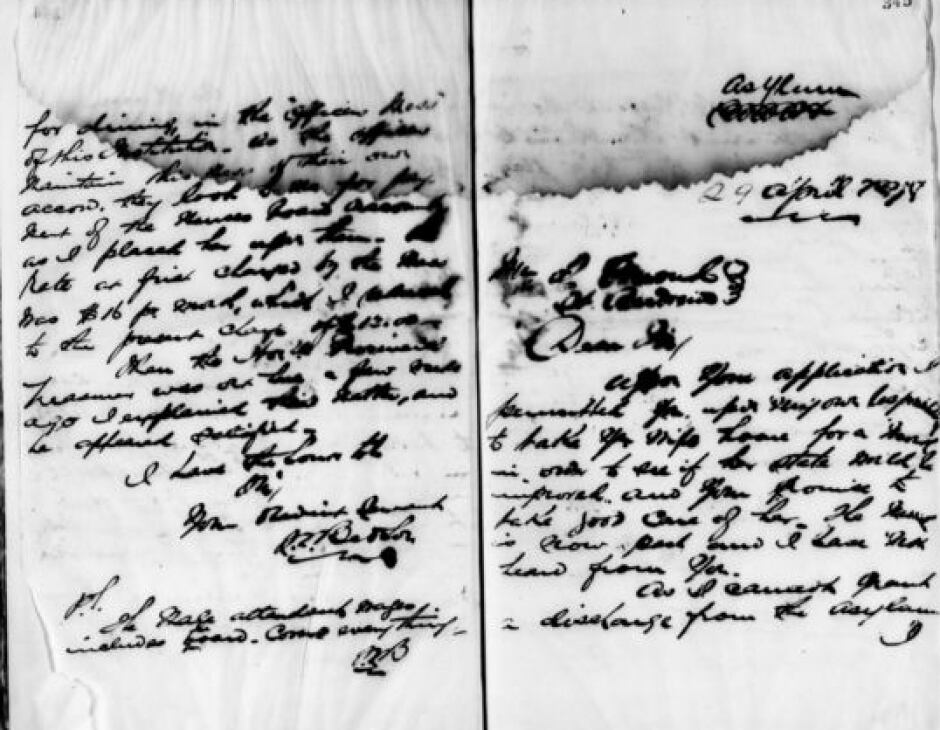 for dining in the "Officers Mess"
of this Institution. As the officers
maintain this Mess of their own
accord, they look to me for pay
ment of the Nurses board account
as I placed her upon them. The
Rate at first charged by the Mess
was $16 pr month, which I reduced
to the present charge of $12.00
When the Hon. Provincial
Treasurer was out here a few weeks
ago I explained this matter, and
he appeared satisfied.
I have the honor to be
Sir,
Your Obedient Servant
P.S.
Male attendant wages
includes board. Covers everything
345
Asylum
29 April
Mr
Dear Sir,
Upon your application I
permitted you, upon very own
to take yr wife home for a
in order to see if her state would be
improved and your promise to
take good care of her. The
is now past and I have not
heard from you.
As I cannot grant
a discharge from the Asylum